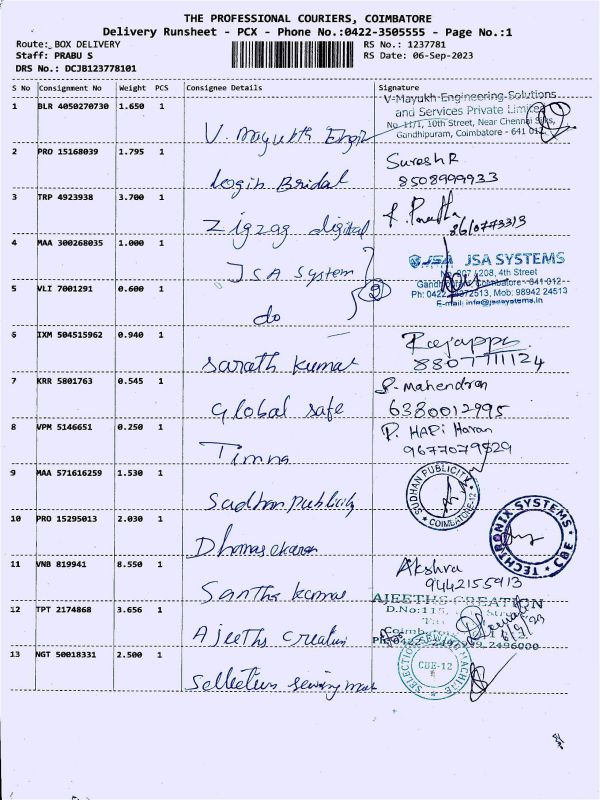 THE PROFESSIONAL COURIERS, COIMBATORE
Delivery Runsheet - PCX - Phone No.:0422-3505555 - Page No.:1
Route: BOX DELIVERY
RS No.: 1237781
Staff: PRABU S
RS Date: 06-Sep-2023
DRS No.: DCJB123778101
S No Consignment No/ Weight PCS Consignee Details Signature
1 BLR 4050270730 1.650 1
V-Mayukh Engineering Solutions
and Services Private Limited
No. 11/1, 10th Street, Near Chennai Silks,
Gandhipuram, Coimbatore - 641 012.
V. Mayukh Engg
2 PRO 15168039 1.795 1
Suresh R
8508999933
Login Bridal
3 TRP 4923938 3.700 1
Zigzag digital
4 MAA 300268035 1.000 1
JSA JSA SYSTEMS
207 / 208, 4th Street
Coimbatore - 641 012
Mob: 98942 24513
E-mail: info@jsasystems.in
JSA System
2
5 VLI 7001291 0.600 1
do
6 IXM 504515962 0.940 1
Rajappa
8807711124
Sarath Kumar
7 KRR 5801763 0.545 1
P. Mahendran
6380012995
Global safe
8 VPM 5146651 0.250 1
P. HARi Haran
9677079829
Timna
9 MAA 571616259 1.530 1
SUDHAN PUBLICITY
COIMBATORE-12
Sudhan Publicity
10 PRO 15295013 2.030 1
TECHTRONIX SYSTEMS
CBE
Dhanasekaran
11 VNB 819941 8.550 1
Akshra
9442155913
Santha kumar
12 TPT 2174868 3.656 1
AJEETHS CREATION
D.No:115,
Coimbatore
2496000
6/9/23
Ajeeths Creation
13 NGT 50018331 2.500 1
SELECTION SEWING MACHINE
CBE-12
Selection sewing mac